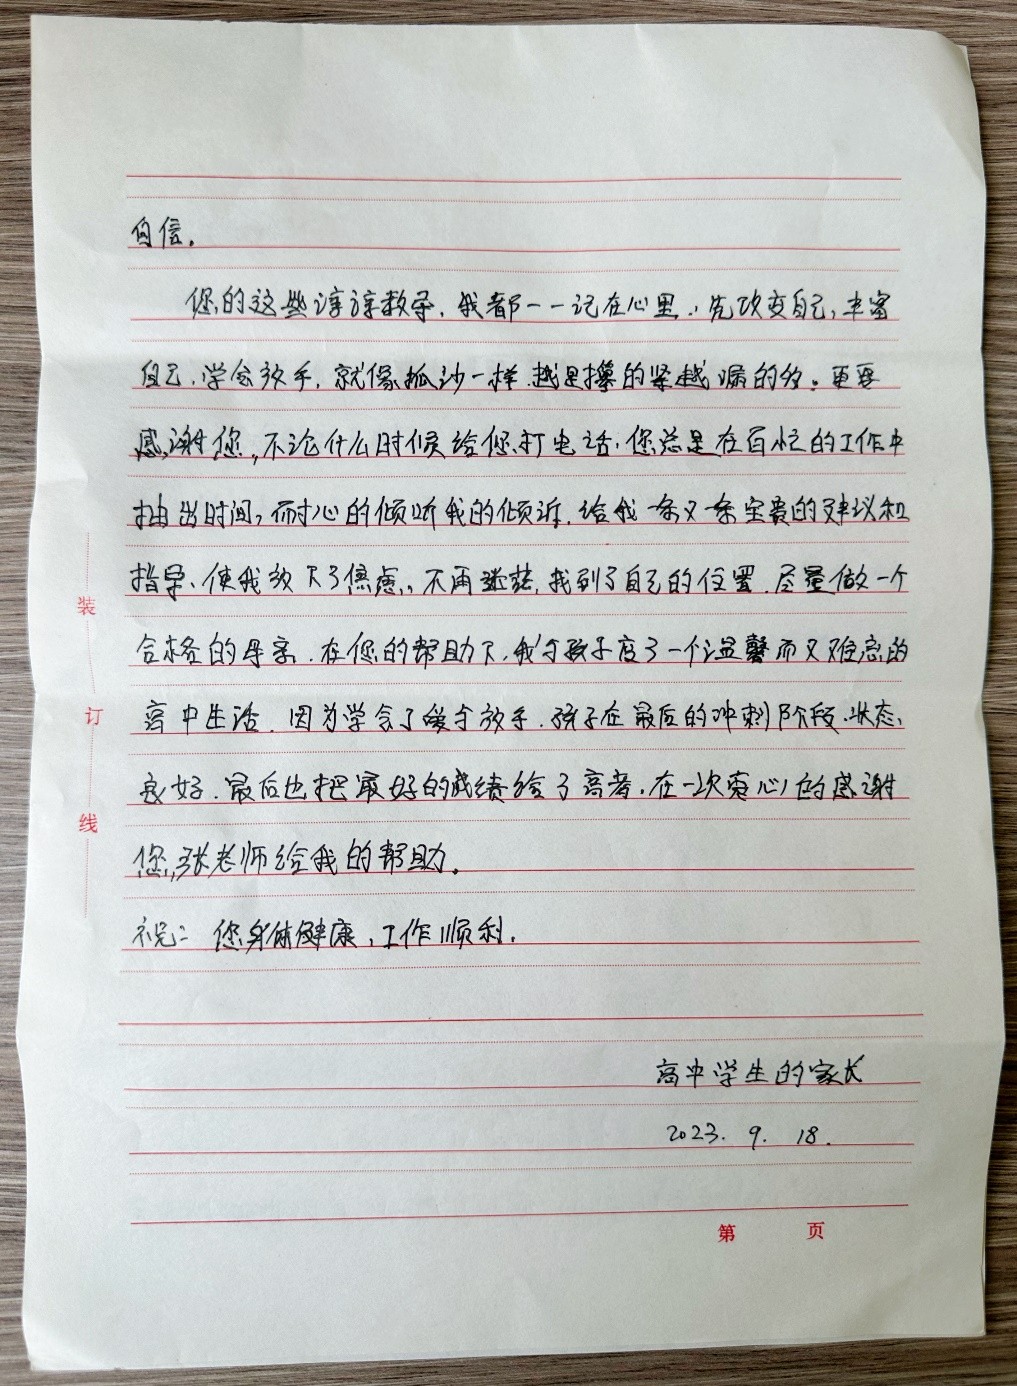 自信。
您的这些谆谆教导，我都一一记在心里，先改变自己，丰富
自己，学会放手，就像抓沙一样，越是攥的紧越漏的多。更要
感谢您，不论什么时候给您打电话，您总是在百忙的工作中
抽出时间，耐心的倾听我的倾诉，给我一条又一条宝贵的建议和
指导，使我放下了焦虑，不再迷茫，找到了自己的位置，尽量做一个
合格的母亲，在您的帮助下，我与孩子度了一个温馨而又难忘的
高中生活，因为学会了爱与放手，孩子在最后的冲刺阶段，状态
良好，最后也把最好的成绩给了高考，在一次衷心的感谢
您，张老师给我的帮助。
祝：您身体健康，工作顺利。
高中学生的家长
2023. 9. 18.
装
订
线
第 页